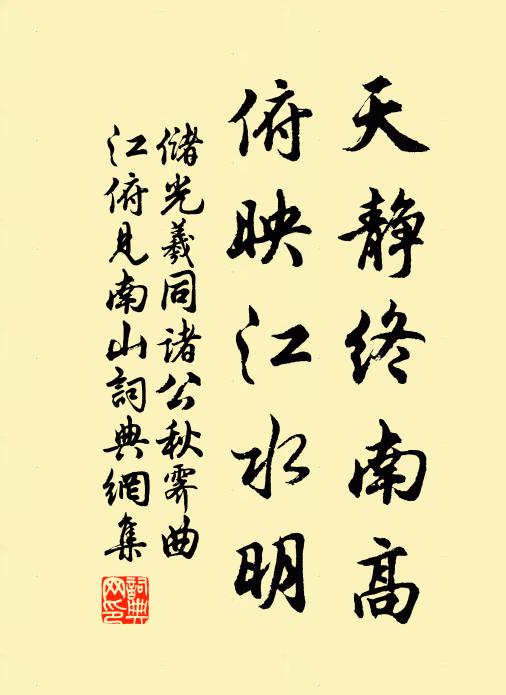 天静终南高
俯映江水明
儲光羲同诸公秋霁曲
江俯見南山詞典網集
詞典
网印